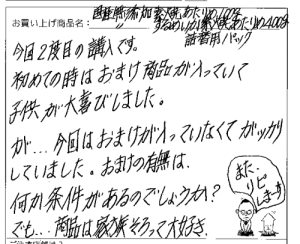 お買い上げ商品名：国産無添加素焼あたりめ100g
〃 するめいか素焼あたりめ400g
詰替用パック
今回2度目の購入です。
初めての時はおまけ商品が入っていて
子供が大喜びしました。
が…今回はおまけが入っていなくてガッカリ
していました。おまけの有無は、
何か条件があるのでしょうか？
でも…商品は家族そろって大好き。
また、
リピ
します